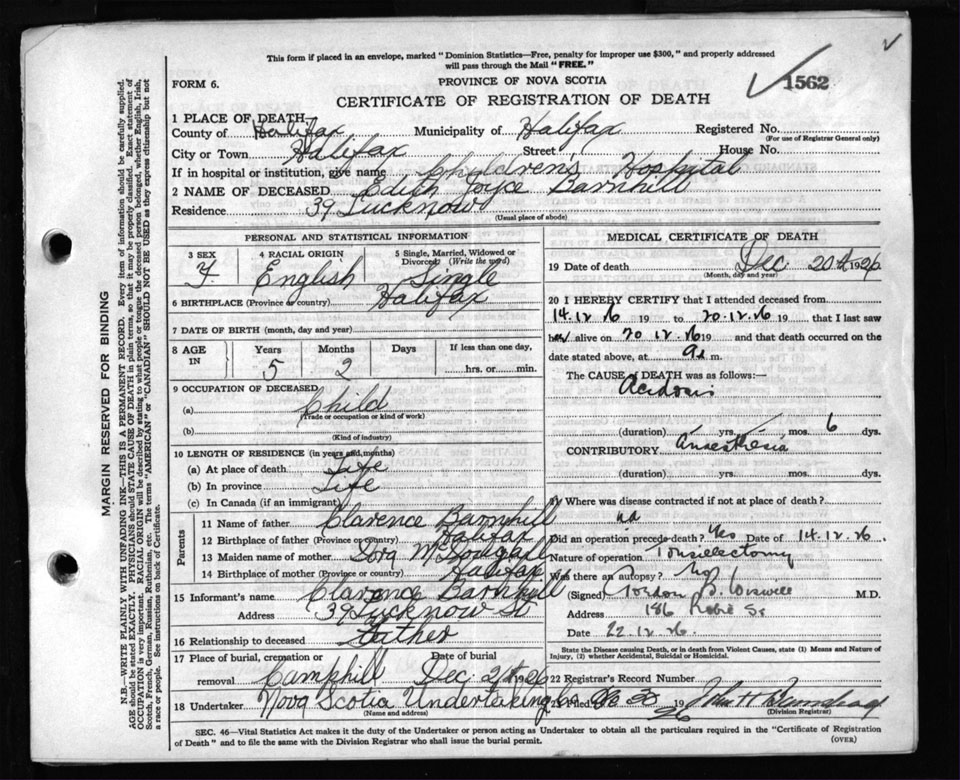 This form if placed in an envelope, marked "Dominion Statistics—Free, penalty for improper use $300," and properly addressed
will pass through the Mail "FREE."
FORM 6.
PROVINCE OF NOVA SCOTIA
1562
CERTIFICATE OF REGISTRATION OF DEATH
1 PLACE OF DEATH—
County of Halifax Municipality of Halifax Registered No.
(For use of Registrar General only)
City or Town Halifax Street House No.
If in hospital or institution, give name Children's Hospital
2 NAME OF DECEASED Edith Joyce Barnhill
Residence 39 Lucknow
(Usual place of abode)
PERSONAL AND STATISTICAL INFORMATION
3 SEX 4 RACIAL ORIGIN 5 Single, Married, Widowed or Divorced (Write the word)
F. English Single
6 BIRTHPLACE (Province or country) Halifax
7 DATE OF BIRTH (month, day and year)
8 AGE IN Years Months Days If less than one day,
5 2 hrs. or min.
9 OCCUPATION OF DECEASED
(a) Child
(Trade or occupation or kind of work)
(b)
(Kind of industry)
10 LENGTH OF RESIDENCE (in years and months)
(a) At place of death Life
(b) In province Life
(c) In Canada (if an immigrant)
Parents
11 Name of father Clarence Barnhill
12 Birthplace of father (Province or country) Halifax
13 Maiden name of mother McDougall
14 Birthplace of mother (Province or country) Halifax
15 Informant's name Clarence Barnhill
Address 39 Lucknow St
16 Relationship to deceased Father
17 Place of burial, cremation or removal Date of burial
Camphill Dec 21st 1926
18 Undertaker Nova Scotia Undertaking
(Name and address)
MEDICAL CERTIFICATE OF DEATH
19 Date of death Dec 20th 1926
(Month, day and year)
20 I HEREBY CERTIFY that I attended deceased from
14.12.26 19 to 20.12.26 19 that I last saw
her alive on 20.12.26 19 and that death occurred on the
date stated above, at 9 a. m.
The CAUSE of DEATH was as follows:—
Acidosis
(duration) yrs. mos. 6 dys.
CONTRIBUTORY Anaesthesia
(duration) yrs. mos. dys.
21 Where was disease contracted if not at place of death?
Did an operation precede death? Yes Date of 14.12.26.
Nature of operation Tonsillectomy
Was there an autopsy? No
(Signed) Gordon B. Wiswell M.D.
Address 186 Robie St
Date 22.12.26.
State the Disease causing Death, or in death from Violent Causes, state (1) Means and Nature of
Injury, (2) whether Accidental, Suicidal or Homicidal.
22 Registrar's Record Number
23 Filed Dec 30 19 26 John H
(Division Registrar)
SEC. 46—Vital Statistics Act makes it the duty of the Undertaker or person acting as Undertaker to obtain all the particulars required in the "Certificate of Registration
of Death" and to file the same with the Division Registrar who shall issue the burial permit. (OVER)
MARGIN RESERVED FOR BINDING
N.B.—WRITE PLAINLY WITH UNFADING INK—THIS IS A PERMANENT RECORD. Every item of information should be carefully supplied.
AGE should be stated EXACTLY. PHYSICIANS should STATE CAUSE OF DEATH in plain terms, so that it may be properly classified. Exact statement of
OCCUPATION is very important. RACIAL ORIGIN will be described by stating to what people or tongue the deceased person belonged, whether English, Irish,
Scotch, French, German, Russian, Ruthenian, etc. The terms "AMERICAN" or "CANADIAN" SHOULD NOT BE USED as they express citizenship but not
a race or people. See instructions on back of Certificate.